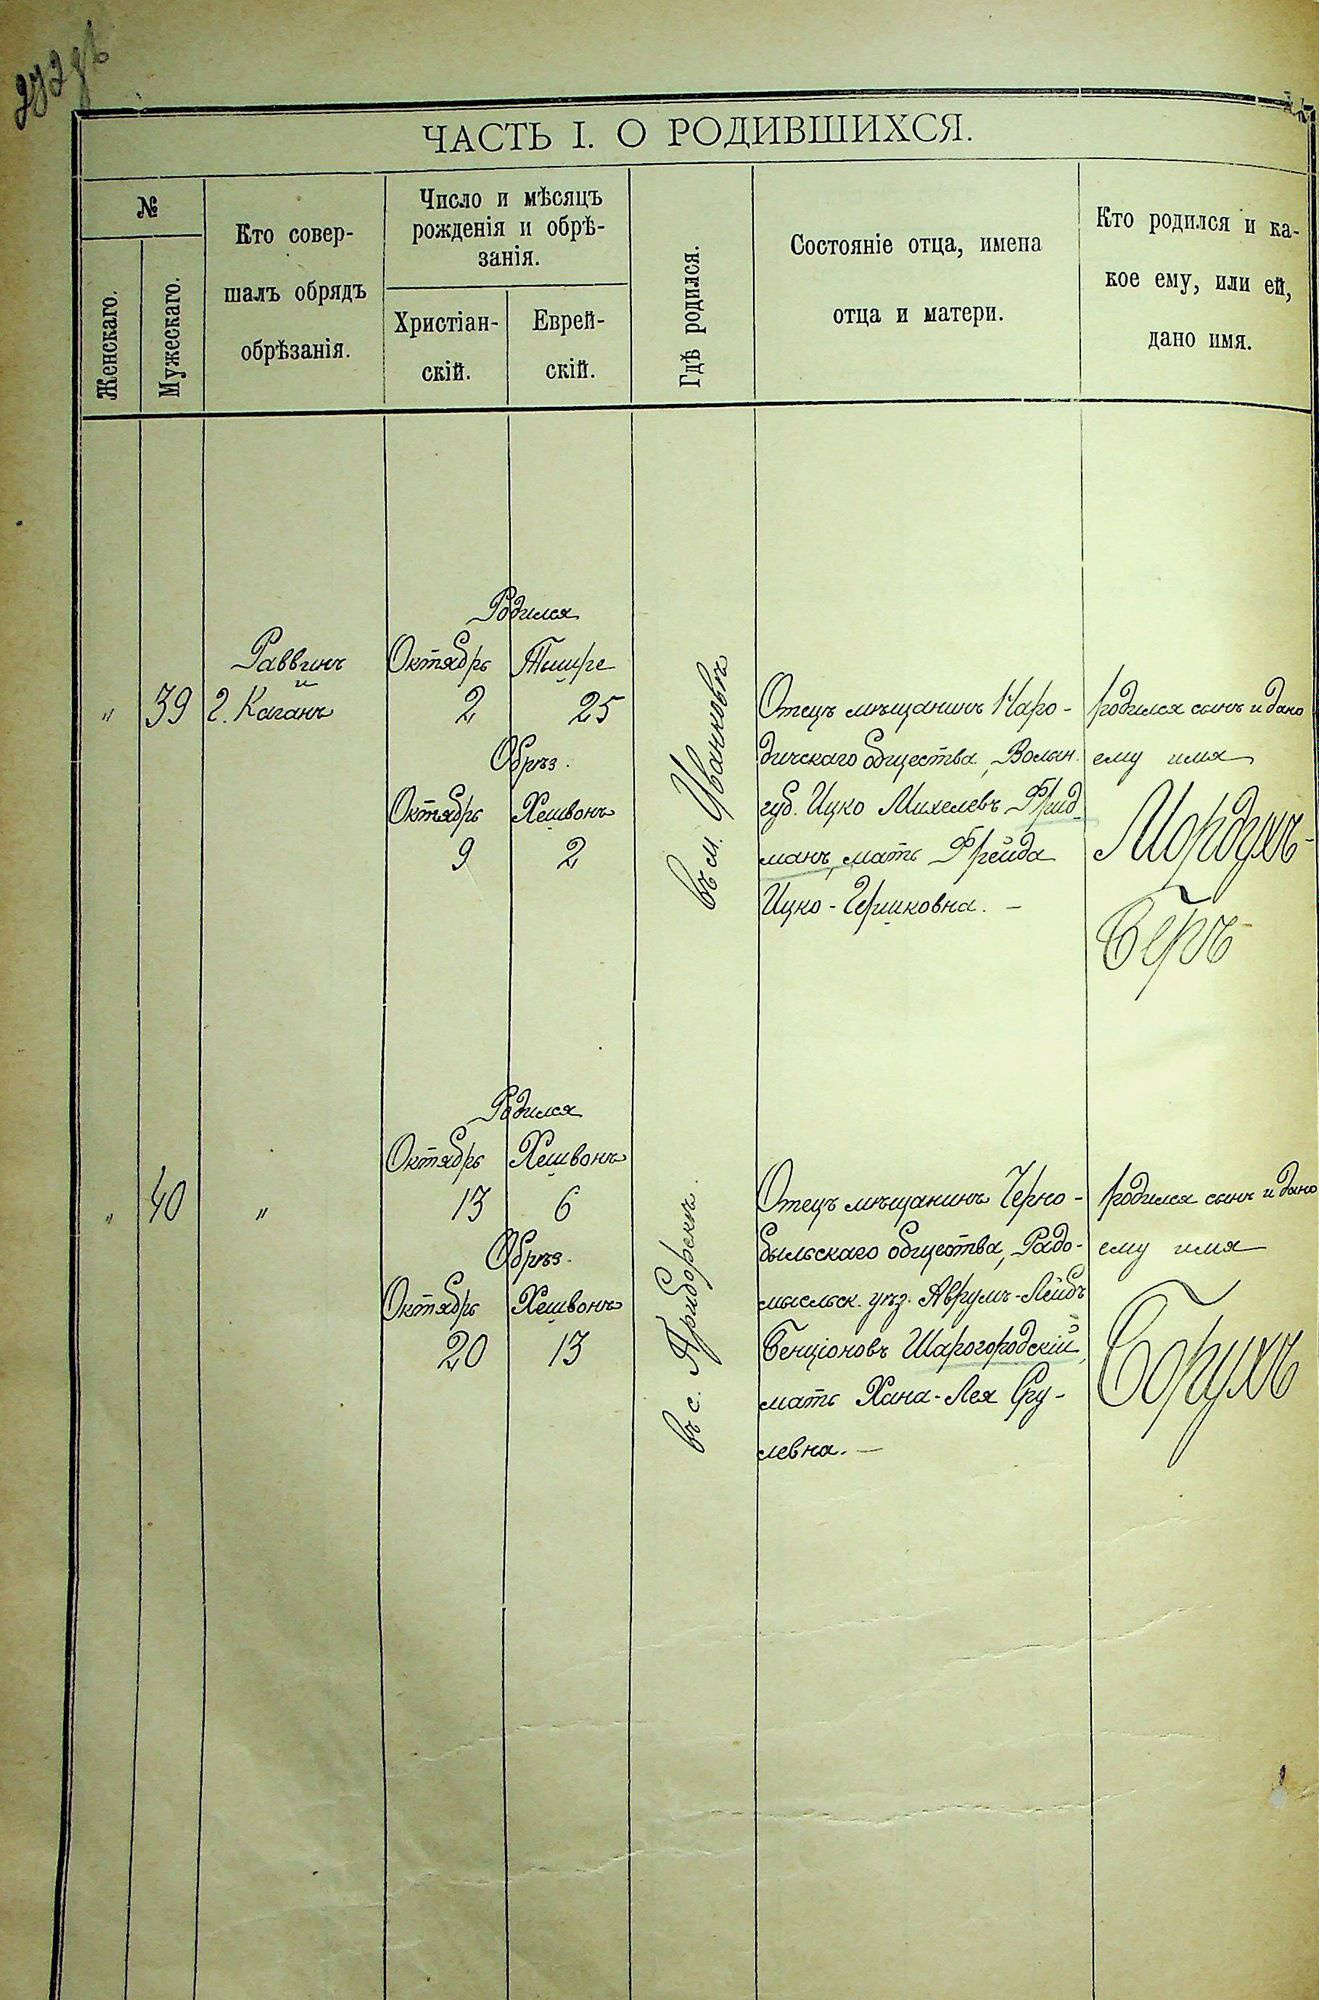 ЧАСТЬ I. О РОДИВШИХСЯ.
№
Женскаго.
Мужескаго.
Кто совер-
шалъ обрядъ
обрѣзанія.
Число и мѣсяцъ
рожденія и обрѣ-
занія.
Христіан-
скій.
Еврей-
скій.
Гдѣ родился.
Состояніе отца, имена
отца и матери.
Кто родился и ка-
кое ему, или ей,
дано имя.
„
39
Раввинъ
и
г. Каганъ
Родился
Октябрь Тышре
2 25
Обрѣз.
Октябрь Хешвонъ
9 2
въ м. Иванковѣ
Отецъ мѣщанинъ Наро-
дичскаго общества, Волын.
губ. Ицко Михелевъ Фрид-
манъ, мать Фрейда
Ицко-Гершковна. —
родился сынъ и дано
ему имя
Мордухъ-
Беръ
„
40
„
Родился
Октябрь Хешвонъ
13 6
Обрѣз.
Октябрь Хешвонъ
20 13
въ с. Приборскѣ.
Отецъ мѣщанинъ Черно-
быльскаго общества, Радо-
мысльск. уѣз. Аврумъ-Лейбъ
Бенціоновъ Шарогородскій,
мать Хана-Лея Сру-
левна. —
родился сынъ и дано
ему имя
Борухъ